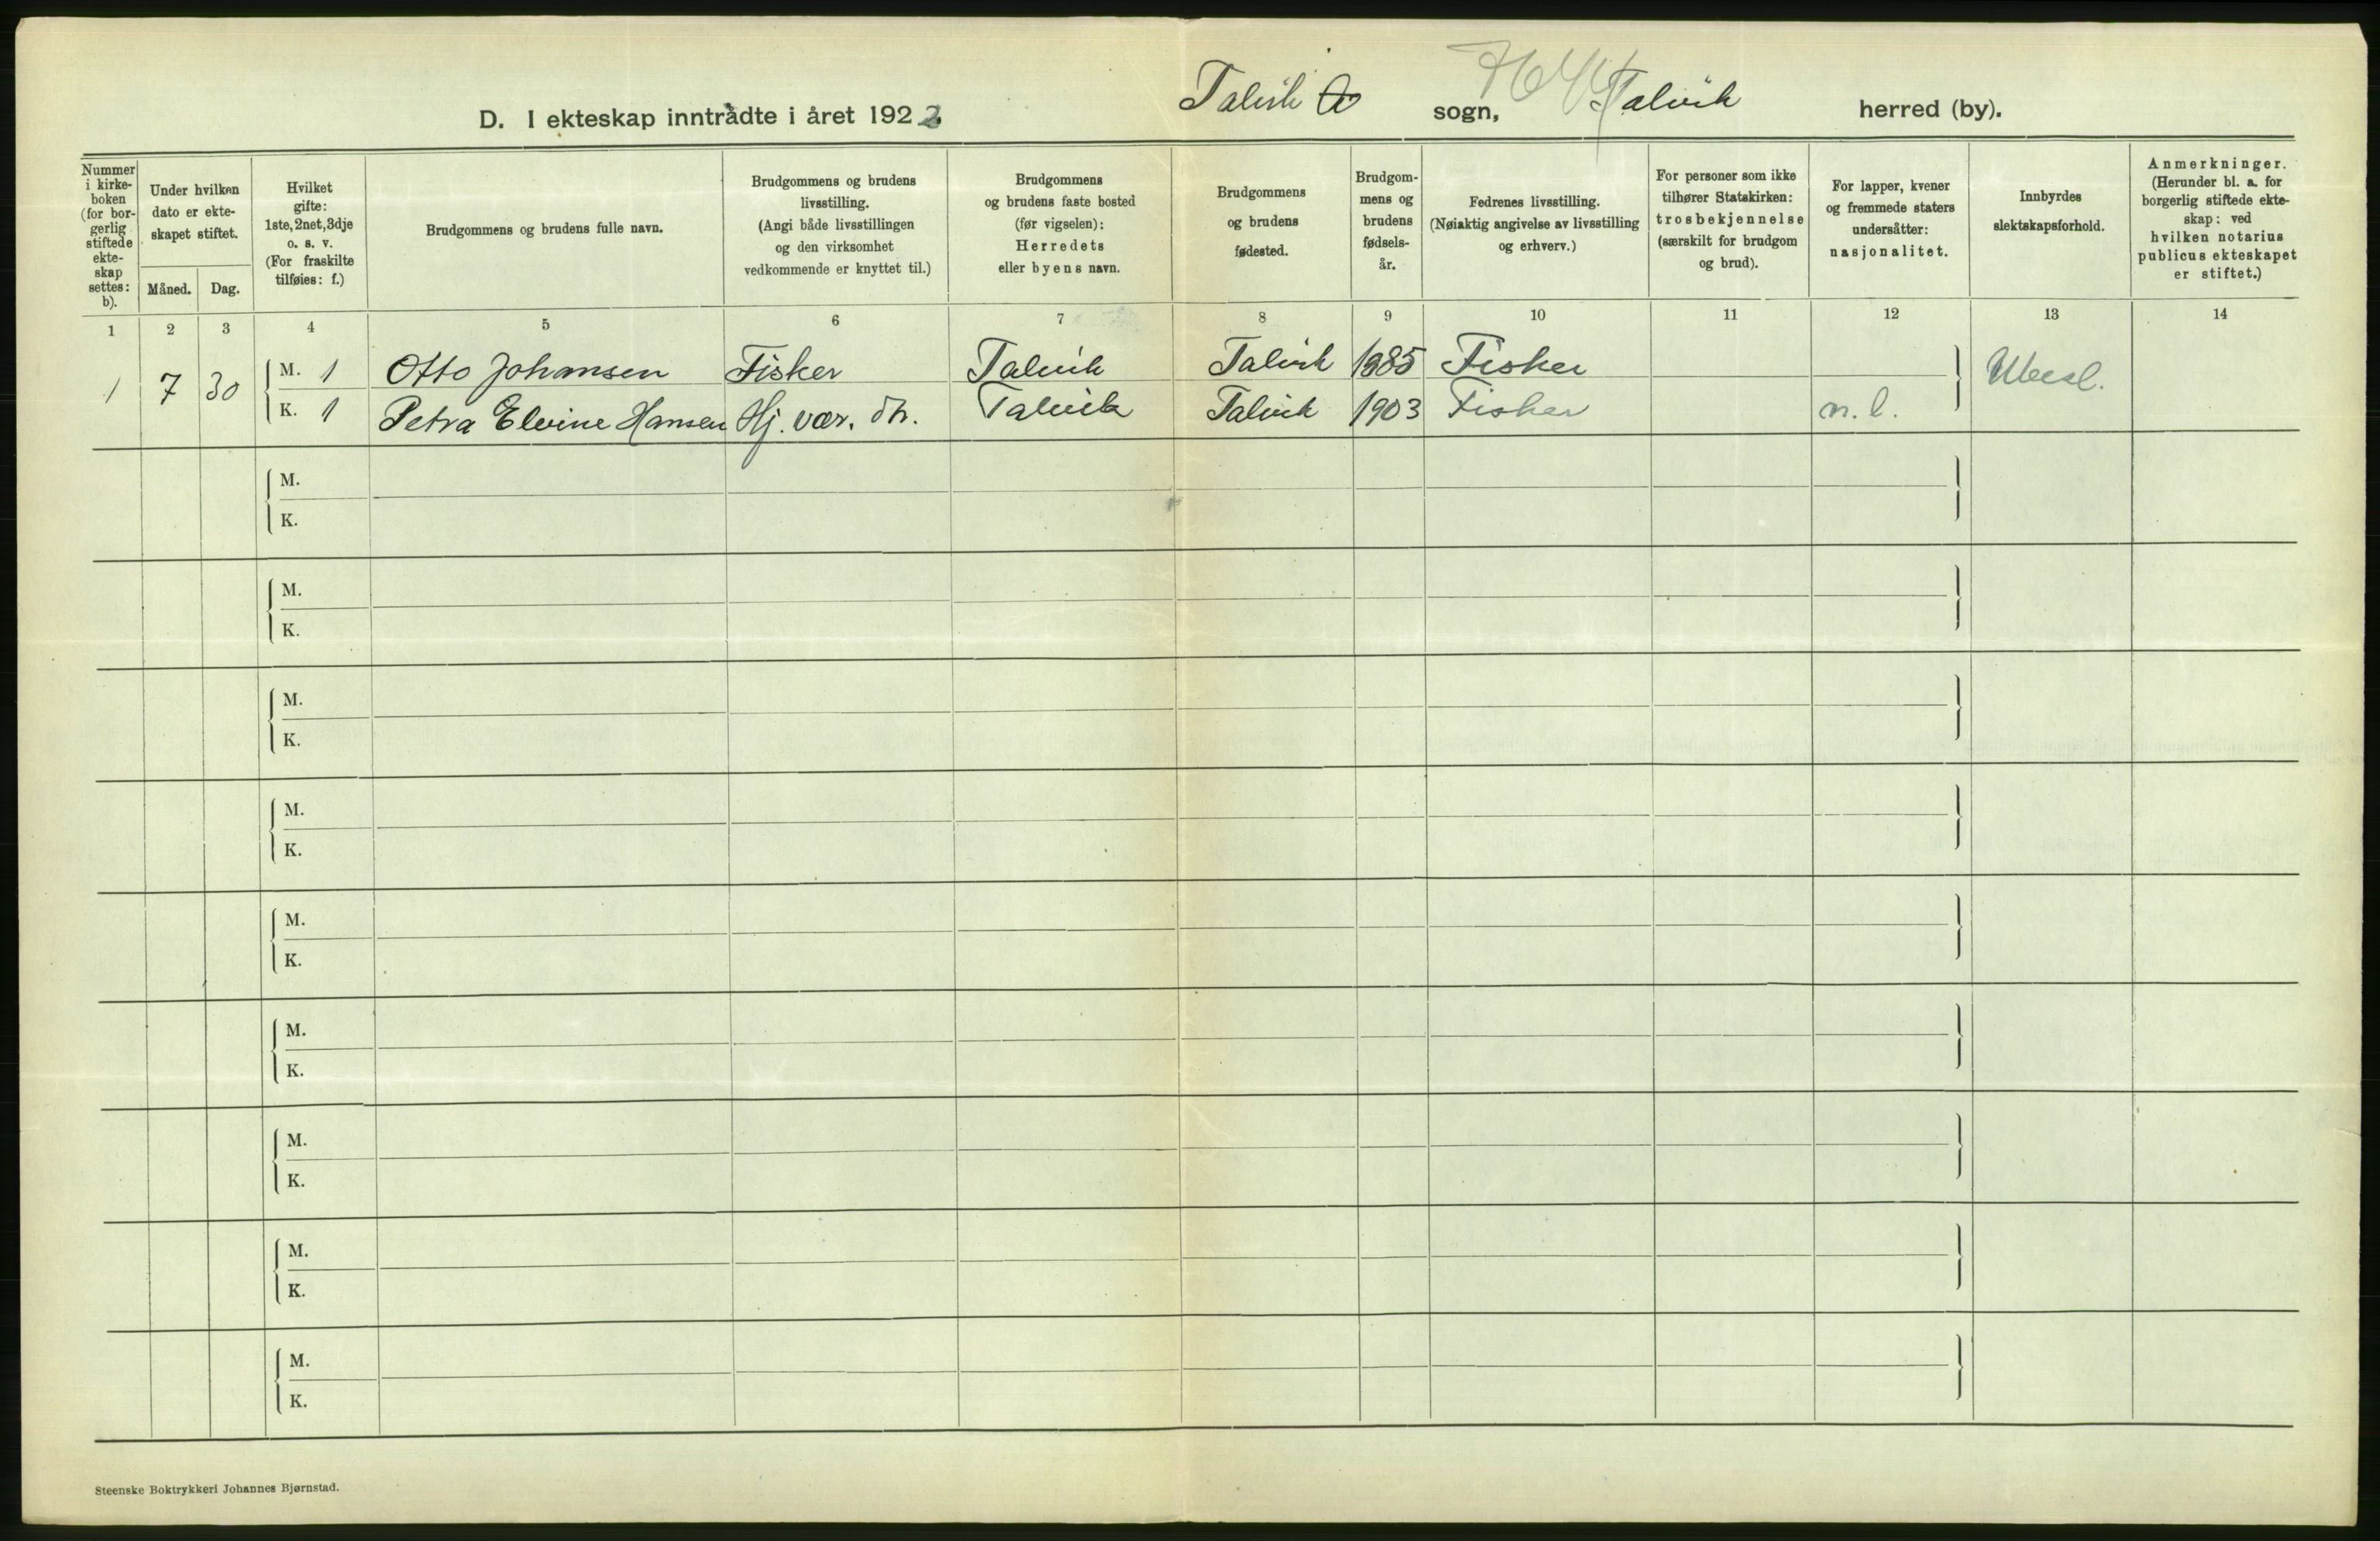 D. I ekteskap inntrådte i året 1922 Talvik sogn, Talvik herred (by).
Nummer i kirke-boken (for bor-gerlig stiftede ekte-skap settes: b).
Under hvilken dato er ekte-skapet stiftet.
Måned. Dag.
Hvilket gifte: 1ste, 2net, 3dje o. s. v. (For fraskilte tilføies: f.)
Brudgommens og brudens fulle navn.
Brudgommens og brudens livsstilling. (Angi både livsstillingen og den virksomhet vedkommende er knyttet til.)
Brudgommens og brudens faste bosted (før vigselen): Herredets eller byens navn.
Brudgommens og brudens fødested.
Brudgom-mens og brudens fødsels-år.
Fedrenes livsstilling. (Nøiaktig angivelse av livsstilling og erhverv.)
For personer som ikke tilhører Statskirken: trosbekjennelse (særskilt for brudgom og brud).
For lapper, kvener og fremmede staters undersåtter: nasjonalitet.
Innbyrdes slektskapsforhold.
Anmerkninger. (Herunder bl. a. for borgerlig stiftede ekte-skap: ved hvilken notarius publicus ekteskapet er stiftet.)
1 2 3 4 5 6 7 8 9 10 11 12 13 14
1 7 30 M. 1 Otto Johansen Fisker Talvik Talvik 1885 Fisker Ubesl.
K. 1 Petra Elvine Hansen Hj. vær. dtr. Talvik Talvik 1903 Fisker n. l.
M.
K.
M.
K.
M.
K.
M.
K.
M.
K.
M.
K.
M.
K.
M.
K.
M.
K.
Steenske Boktrykkeri Johannes Bjørnstad.